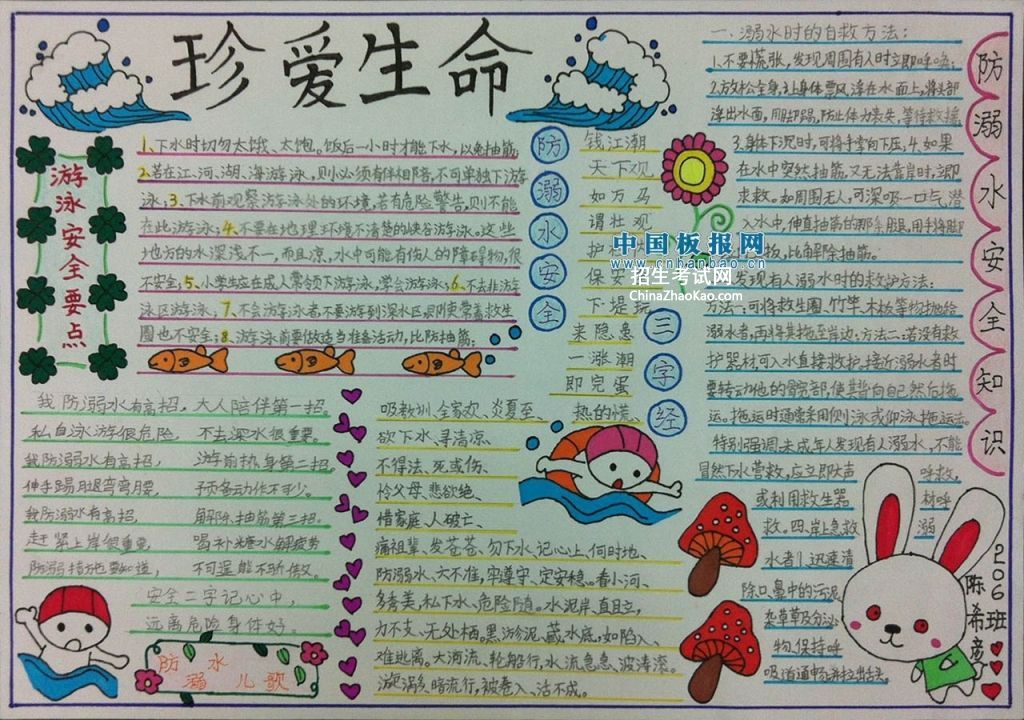 珍爱生命
游泳安全要点
1、下水时切勿太饿、太饱。饭后一小时才能下水,以免抽筋
2、若在江、河、湖、海游泳,则必须有伴相陪,不可单独下游
泳;3、下水前观察游泳处的环境,若有危险警告,则不能
在此游泳;4、不要在地理环境不清楚的峡谷游泳。这些
地方的水深浅不一,而且凉,水中可能有伤人的障碍物,很
不安全;5、小学生应在成人带领下游泳,学会游泳;6、不去非游
泳区游泳;7、不会游泳者,不要游到深水区,即使带着救生
圈也不安全;8、游泳前要做适当准备活动,比防抽筋;
防溺水安全
三字经
钱江潮
天下观
如万马
谓壮观
护
保安
下堤玩
来隐急
一涨潮
即完蛋
中国板报网
www.cnbanbao.cn
招生考试网
ChinaZhaoKao.com
防溺水安全知识
一、溺水时的自救方法:
1.不要慌张,发现周围有人时立即呼唤;
2.放松全身,让身体票风浮在水面上,将头部
浮出水面,用脚踢,防止体力丧失,等待救援
3.身体下沉时,可将手掌向下压;4.如果
在水中突然抽筋,又无法靠岸时,立即
求救。如周围无人,可深吸一口气,潜
入水中,伸直抽筋的那条腿,用手将脚
以解除抽筋。
发现有人溺水时的救护方法:
方法一:可将救生圈、竹竿、木板等物抛给
溺水者,再将其拖至岸边;方法二:若没有救
护器材,可入水直接救护。接近溺水者时
要转动他的髋部,使其背向自己然后拖
运。拖运时通常采用侧泳或仰泳拖运法
特别强调:未成年人发现有人溺水,不能
冒然下水营救,应立即大声呼救,
或利用救生器材呼
救。四、岸上急救溺
水者1.迅速清
除口、鼻中的污泥、
杂草及分泌
物,保持呼
吸道通畅,并拉出舌头。
我防溺水有高招,大人陪伴第一招。
私自泳游很危险,不去深水很重要。
我防溺水有高招,游前热身第二招。
伸手踢腿弯弯腰,预备动作不可少。
我防溺水有高招,解除抽筋第三招。
赶紧上岸很重要,喝补糖水解疲劳
防溺措施要知道,不可逞能不骄傲。
安全二字记心中,
远离危险身体好。
防溺水儿歌
吸教训、全家欢、炎夏至、热的慌、
欲下水、寻清凉、
不得法、死或伤、
怜父母、悲欲绝、
惜家庭、人破亡、
痛祖辈、发苍苍、勿下水、记心上、何时地、
防溺水、六不准,牢遵守、定安稳。看小河、
多秀美,私下水、危险随。水泥岸、直且立,
力不支、无处栖。黑淤泥、藏水底,如陷入、
难逃离。大河流、轮船行,水流急急、波涛滚。
漩涡多、暗流行,被卷入、活不成。
206班
陈希